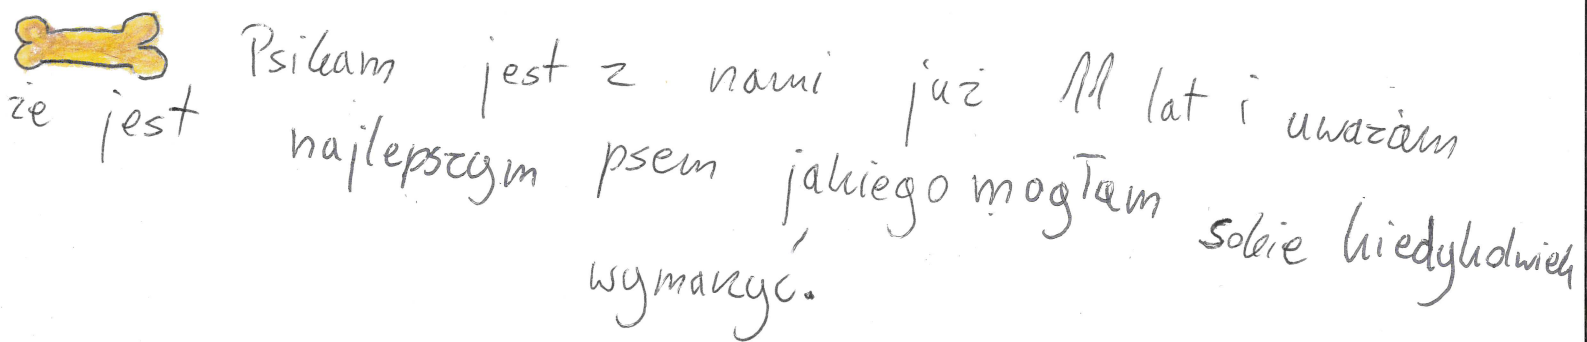 Psikam jest z nami już 11 lat i uważam
że jest najlepszym psem jakiego mogłam sobie kiedykolwiek
wymarzyć.